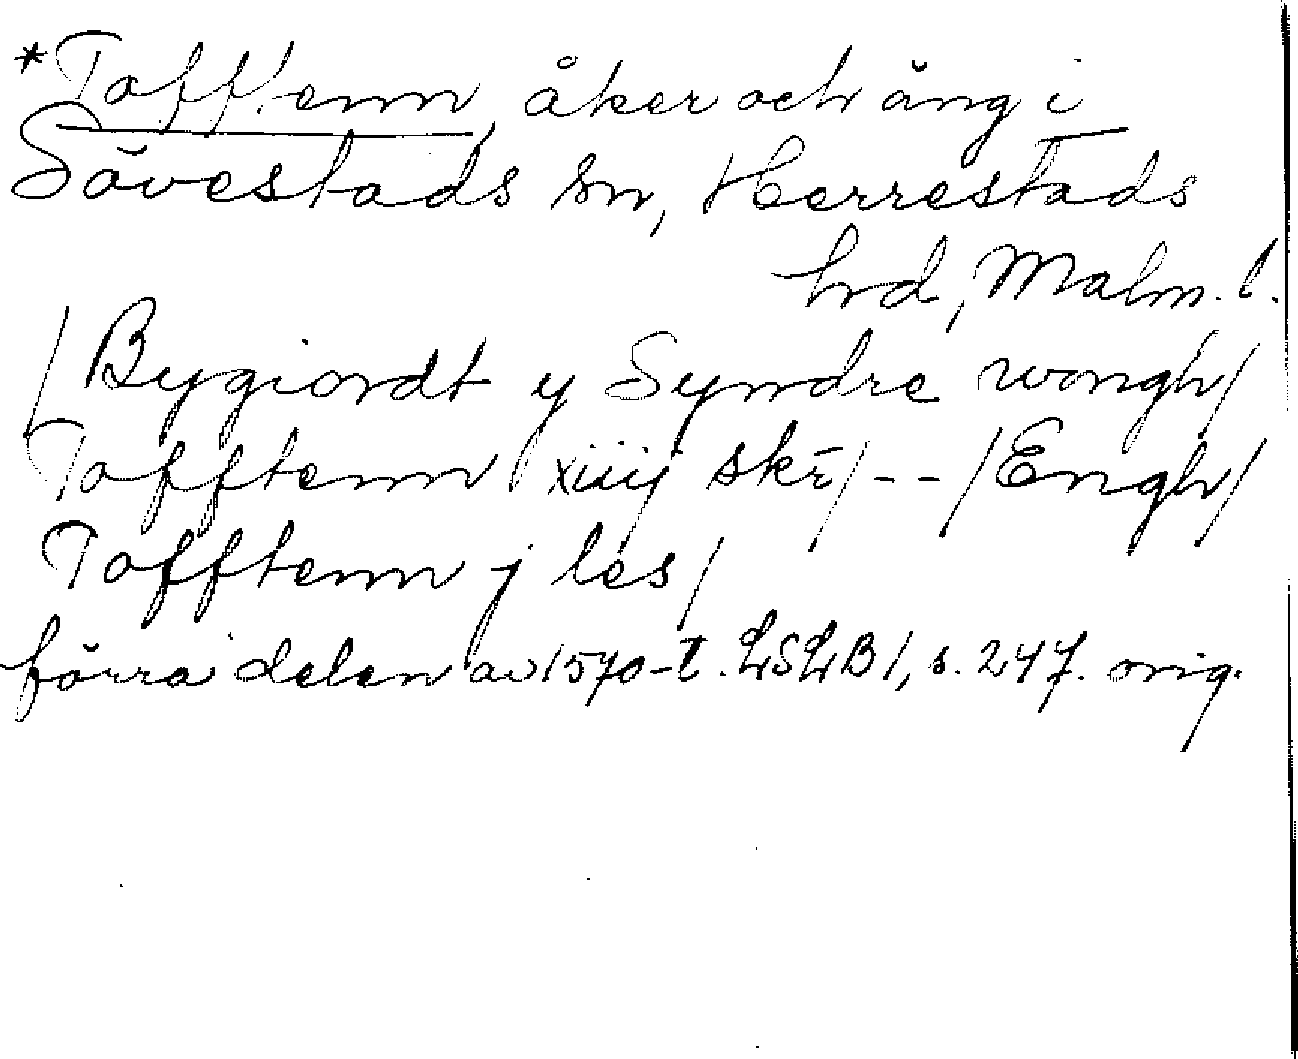 *Tofftenn, åker och äng i
Sövestads sn, Herrestads
hrd, Malm. l.
/Bygiordt y Syndre wongh/
Tofftenn xiiij skr̄/--/Engh/
Tofftenn j les/
förra delen av 1570-t. LSLB 1, s. 247. orig.